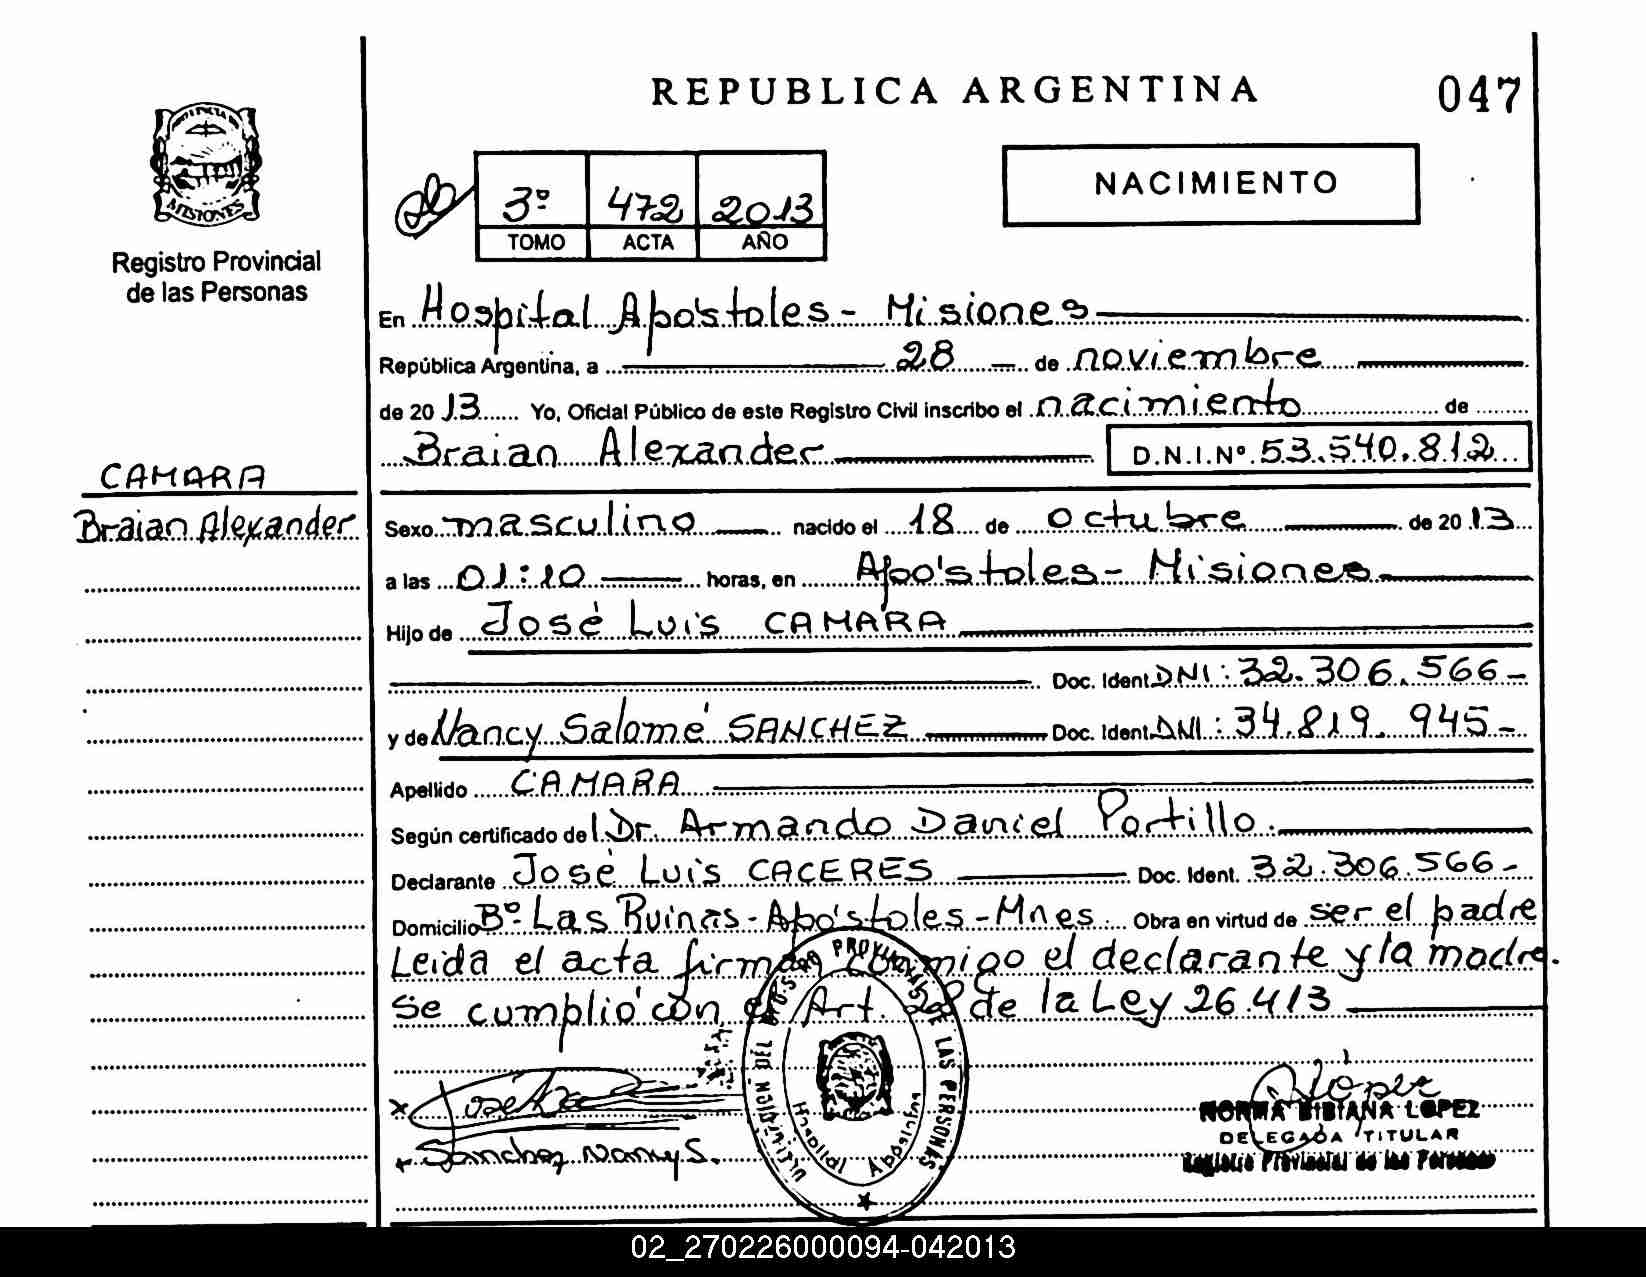 REPUBLICA ARGENTINA
047
MISIONES
Registro Provincial
de las Personas
3º 472 2013
TOMO ACTA AÑO
NACIMIENTO
En Hospital Apóstoles - Misiones
República Argentina, a 28 de noviembre
de 2013 Yo, Oficial Público de este Registro Civil inscribo el nacimiento de
Braian Alexander D.N.I.Nº 53.540.812
CAMARA
Braian Alexander
Sexo masculino nacido el 18 de octubre de 2013
a las 01:10 horas, en Apóstoles - Misiones
Hijo de José Luis CAMARA
Doc. Ident DNI: 32.306.566-
y de Nancy Salomé SANCHEZ Doc. Ident DNI: 34.819.945-
Apellido CAMARA
Según certificado del Dr. Armando Daniel Portillo.
Declarante José Luis CACERES Doc. Ident. 32.306.566-
Domicilio Bº Las Ruinas - Apóstoles - Mnes. Obra en virtud de ser el padre
Leida el acta firman conmigo el declarante y la madre.
Se cumplió con el Art. de la Ley 26.413
Sanchez Nancy S.
López
NORMA BIBIANA LOPEZ
DELEGADA TITULAR
Registro Provincial de las Personas
PROVINCIAL DE LAS PERSONAS
Hospital Apóstoles
02_270226000094-042013